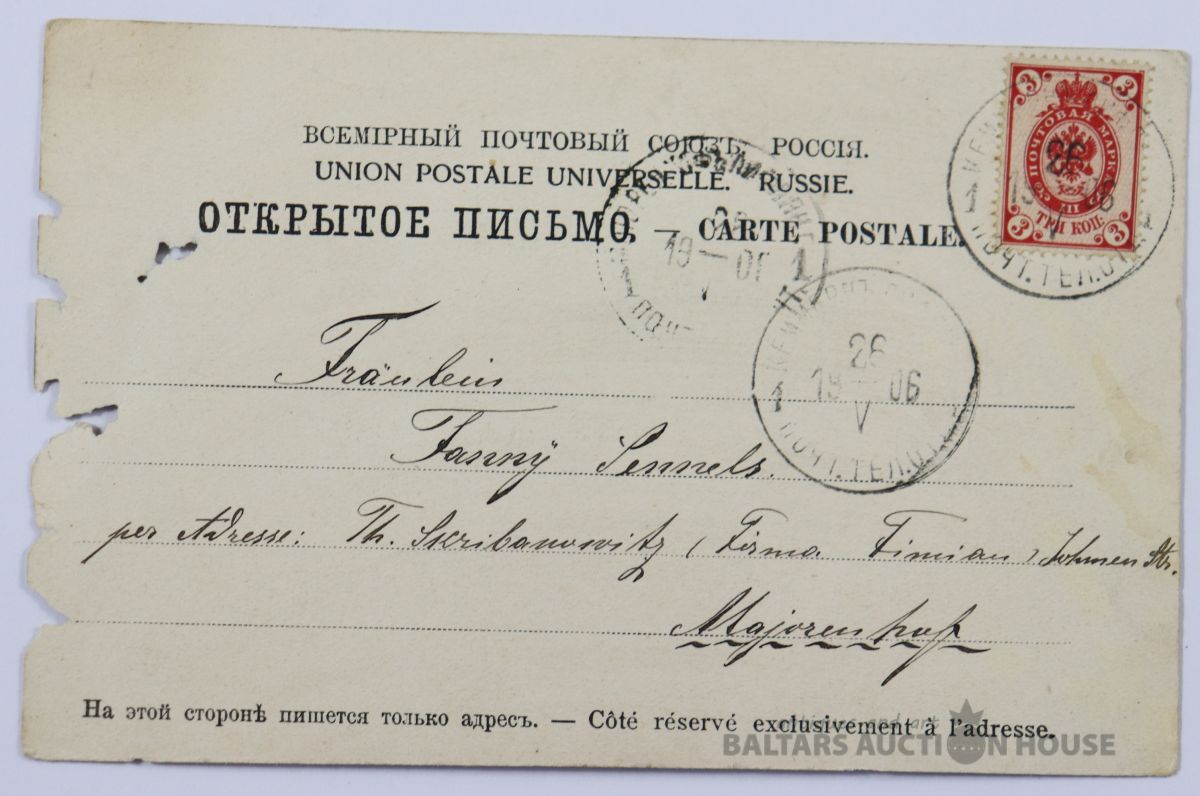 ВСЕМІРНЫЙ ПОЧТОВЫЙ СОЮЗЪ. РОССІЯ.
UNION POSTALE UNIVERSELLE. RUSSIE.
ОТКРЫТОЕ ПИСЬМО. — CARTE POSTALE.
3 3
ПОЧТОВАЯ МАРКА
ТРИ КОП.
3 3
26
19 06
V
ПОЧТ. ТЕЛ.
19 — 01
V
1
26
19 — 06
V
1
ПОЧТ. ТЕЛ.
Fräulein
Fanny Sennels.
per Adresse: Th. Skribanowitz (Firma Fimian)
Majorenhof
На этой сторонѣ пишется только адресъ. — Côté réservé exclusivement à l'adresse.
antiques and art
BALTARS AUCTION HOUSE